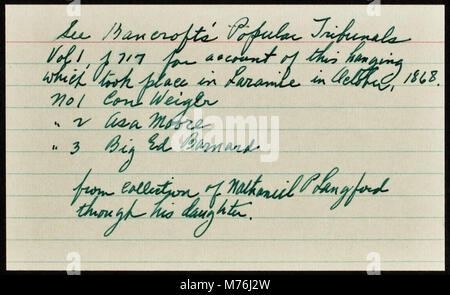 See Bancroft's Popular Tribunals
Vol 1, p 717 for account of this hanging
which took place in Laramie in October, 1868.
No 1 Con Weiglr
" 2 Asa Moore
" 3 Big Ed Barnard
from collection of Nathaniel P Langford
through his daughter.
alamy
alamy
Image ID: M76J2W
www.alamy.com